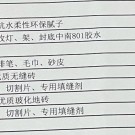 抗水柔性环保腻子
攻灯、架、封底中南801胶水
排笔、毛巾、砂皮
质无缝砖
切割片、专用填缝剂
优质玻化地砖
切割片、专用填缝剂